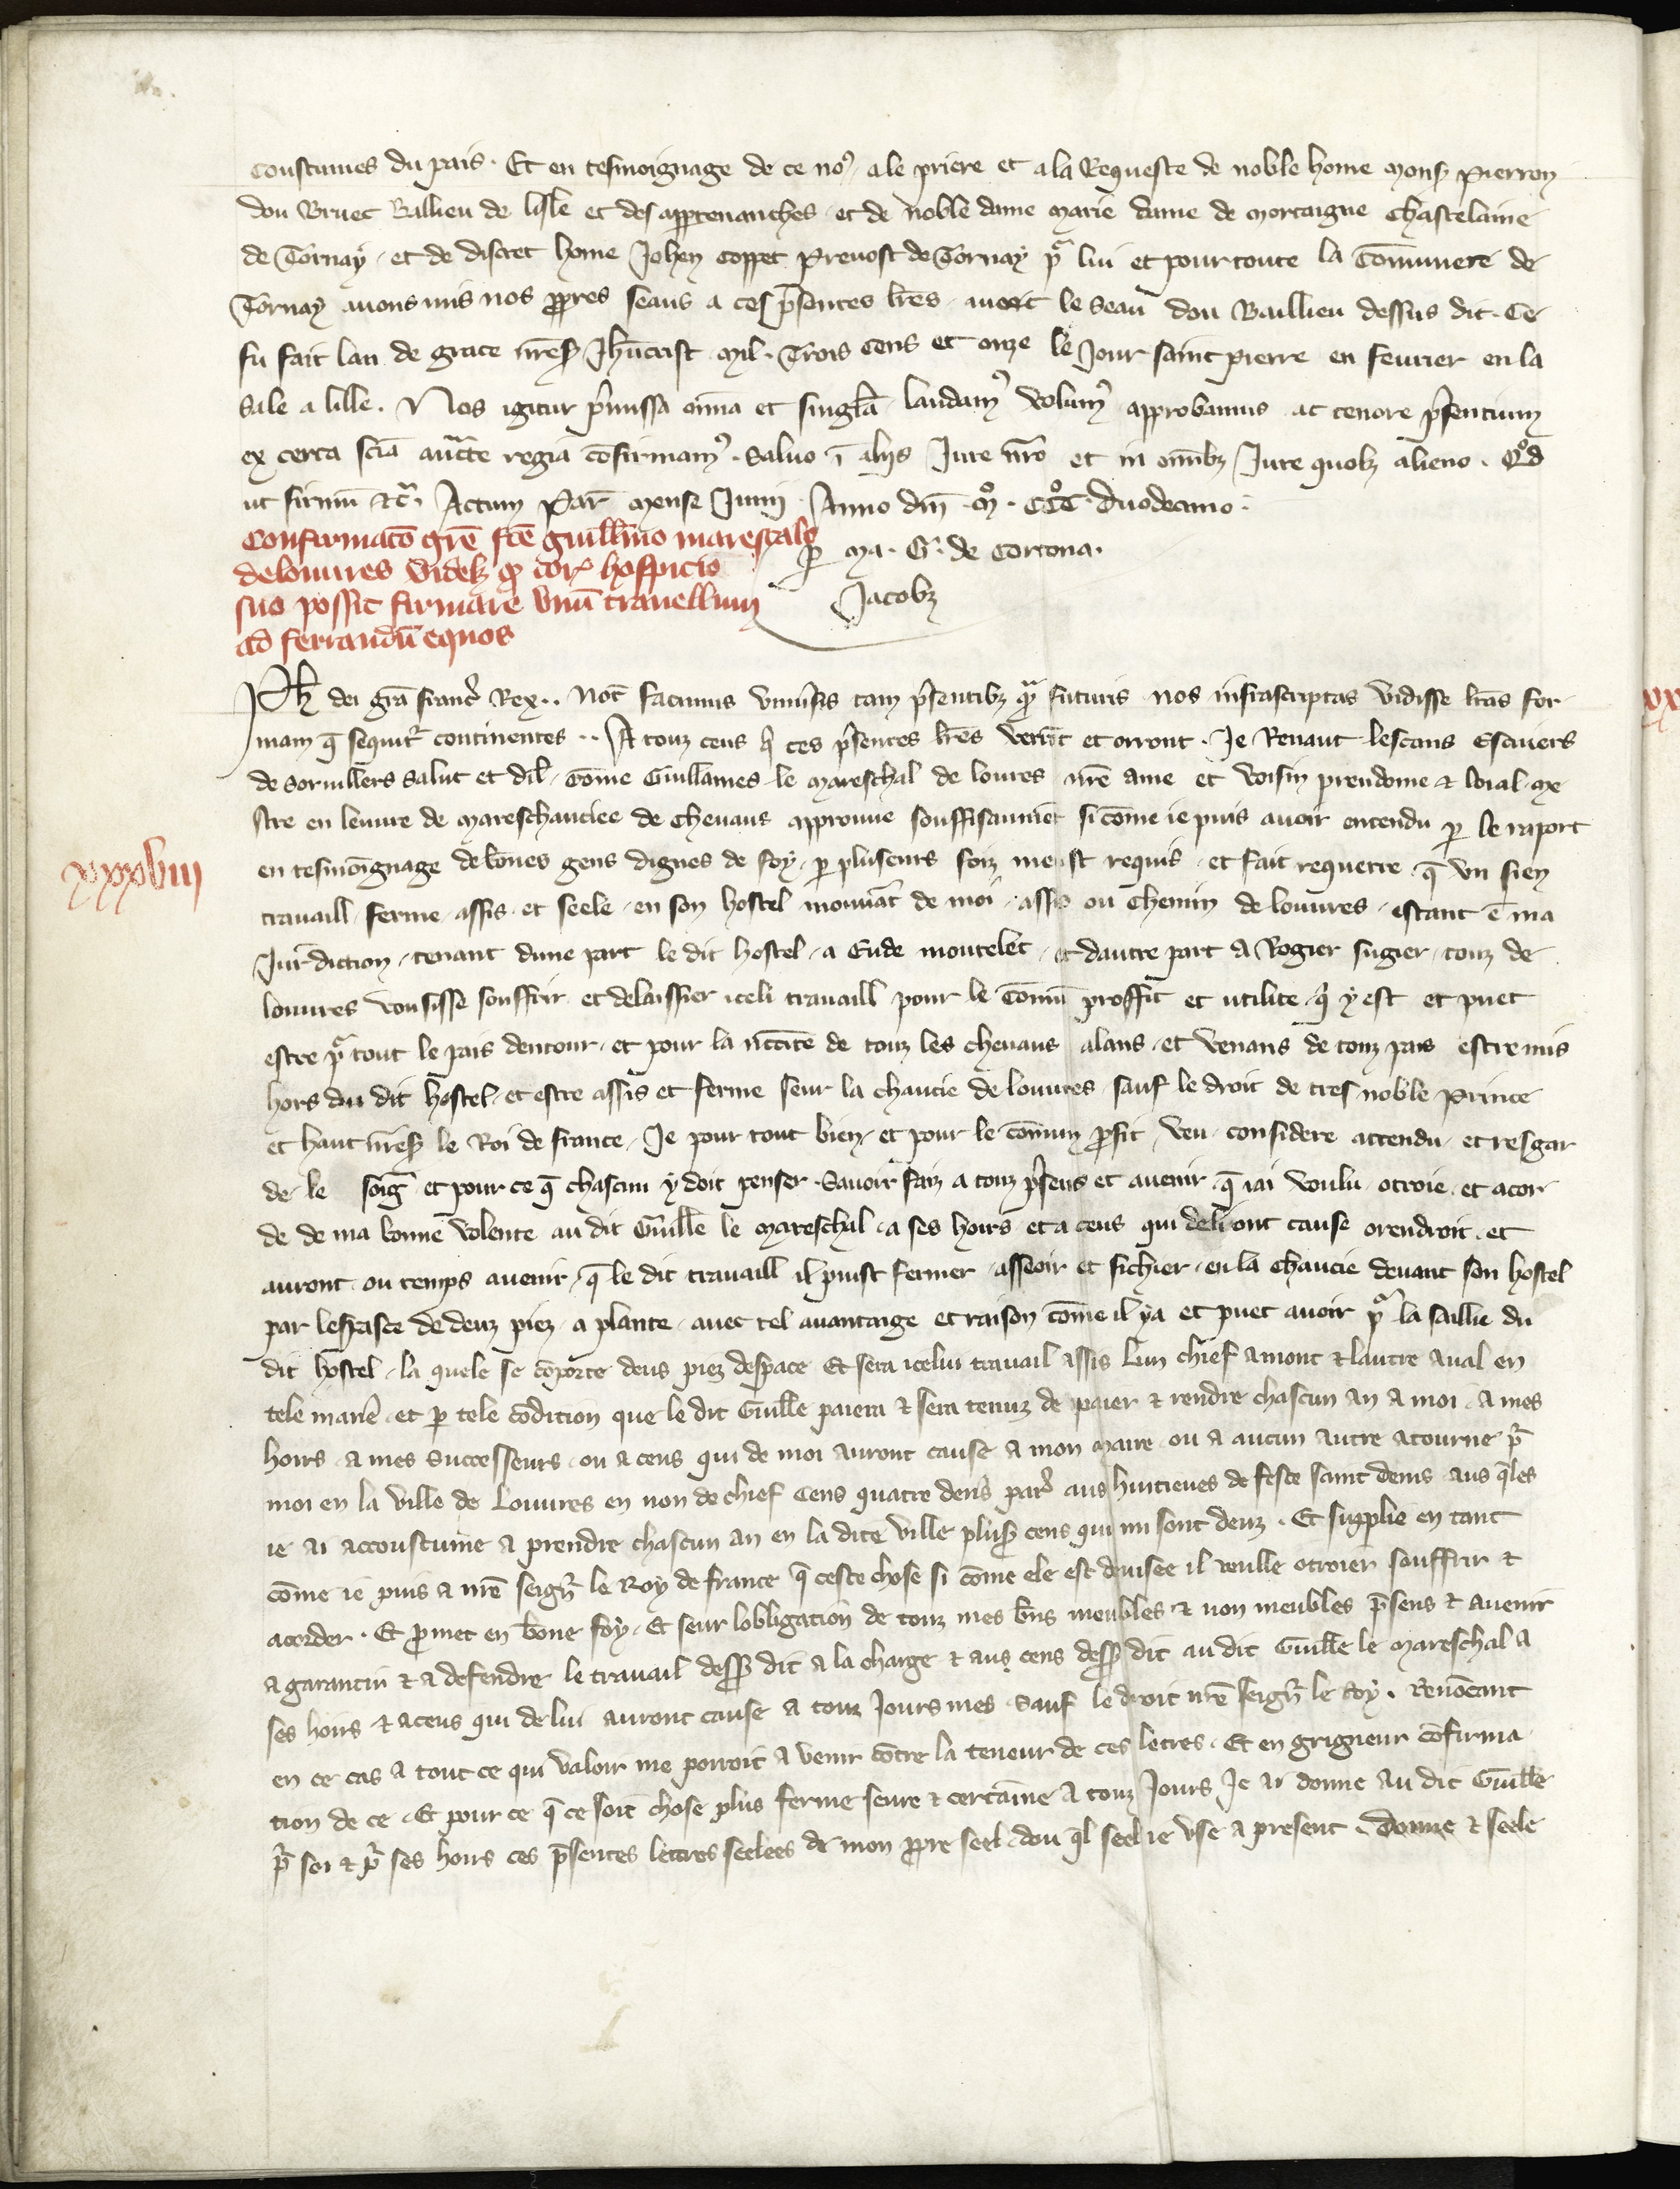 coustumes du pais. Et en tesmoignage de ce noꝰ a le priere et a la Requeste de noble home Monsꝭ Pierron
dou Bruec Ballieu de lisle et des appertenanches et de noble dame Marie dame de Mortaigne Chastelaine
de Tornay et de discret home Jehen Coppet Prevost de Tornay pͬ lui et pour toute la Comunete de
Tornay avons mis nos ꝓpres seaus a ces p̄sentes lr̄es avoec le seau dou Baillieu dessus dit. Ce
fu fait lan de grace nr̄e sꝭ Jhūcrist Mil. Trois Cens et onze le Jour saint Pierre en fevrier en la
Sale a lille. Nos igitur p̄missa om̄ia et singl̄a laudamꝰ volumꝰ approbamus ac tenore p̄sentium
ex certa scīa auct̄te regia cōfirmamꝰ. Salvo ī alijs Jure nr̄o et in om̄ibꝫ Jure quolꝫ alieno. Qͦd
ut firmū etc̄. Actum Par̄ Mense Junij Anno dn̄i Mͦ. CCCͦ duodecimo.
Confirmatō gr̄e fc̄e Guill̄mo marescallo
de louvres videlꝫ ꝙ corꝫ hospicio
suo possit firmare unū travellum
ad ferrandū equos
ꝑ Ma. G. de Cortona.
Jacobꝫ
Ph̄ dei gr̄a franc̄ Rex. Not̄ facimus univ̄sis tam p̄sentibꝫ qͣ futuris nos infrascriptas vidisse lr̄as for
mam q̄ sequitͬ continentes. A touz ceus qͥ ces p̄sentes lr̄es verrōt et orront. Je Renaut lescans Escuiers
de Sorvill̄ers salut et dil̄. Cōme Guill̄ames le Mareschal de louvres nr̄e ame et voisin preudome et loial me
stre en levure de Mareschauciee de chevaus approuve souffisaumēt si cōme ie puis avoir entendu ꝑ le raport
en tesmoīgnage de bōnes gens dignes de foy ꝑ pluseurs foiz meust requis et fait requerre q̄ un sien
xxxviii
travaill ferme assis et seele en son hostel mouvāt de moi assis ou chemin de louvres estant ē ma
Juridiction tenant dune part le dit hostel a Eude moutelet et dautre part a Rogier sugier touz de
louvres vousisse souffrir et delaissier iceli travaill pour le cōmū proffit et utilite qͥ y est et puet
estre pͬ tout le pais dentour et pour la nccīte de touz les chevaus alans et venans de touz pais estre mis
hors du dit hostel et estre assis et ferme seur la chaucie de louvres sauf le droit de tres noble Prince
et haut nr̄e sꝭ le Roi de france. Je pour tout bien et pour le cōmun ꝓfit veu considere attendu et resgar
de le soiḡ et pour ce q̄ chascun y doit penser. Savoir faiz a touz p̄sens et avenir q̄ iai voulu otroie et acor
de de ma bonne volente au dit Guill̄e le Mareschal a ses hoirs et a ceus qui de li ont cause orendroit et
auront ou temps avenir q̄ le dit travaill il puist fermer asseoir et fichier en la chaucie devant son hostel
par lespasce de deuz piez a plante avec tel avantaige et raison cōme il ya et puet avoir pͬ la saillie du
dit hostel la quele se cōporte deus piez despace Et sera icelui travail assis lun chief amont et lautre aval en
tele manīe et ꝑ tele cōdition que le dit Guill̄e paiera et sera tenuz de paier et rendre chascun an a moi a mes
hoirs a mes successeurs ou a ceus qui de moi auront cause a mon maire ou a aucun autre atourne pͬ
moi en la ville de Louvres en non de chief Cens quatre deniꝰ parꝭ aus huitieves de feste saint Denis aus q̄les
ie ai accoustume a prendre chascun an en la dite ville plusꝭ cens qui mi sont deuz. Et supplie en tant
cōme ie puis a nr̄e seignͬ le Roy de france q̄ ceste chose si cōme ele est devisee il veulle otroier souffrir et
acorder. Et ꝓmet en bōne foy. Et seur lobligation de touz mes bn̄s meubles et non meubles p̄sens et avenir
a garantir et a defendre le travail dessꝰ dit a la charge et aus cens dessꝰ dit au dit Guill̄e le Mareschal a
ses hoirs et a ceus qui de lui auront cause a touz Jours mes Sauf le droit nr̄e seignͬ le Roy. Renōcant
en ce cas a tout ce qui valoir me porroit a venir cōtre la teneur de ces letres. Et en grigneur cōfirma
tion de ce. Et pour ce q̄ ce soit chose plus ferme seure et certaine a touz Jours Je ai donne au dit Guill̄e
pͬ soi et pͬ ses hoirs ces p̄sentes lettres seelees de mon ꝓpre seel dou q̄l seel ie use a present. Donne et seele